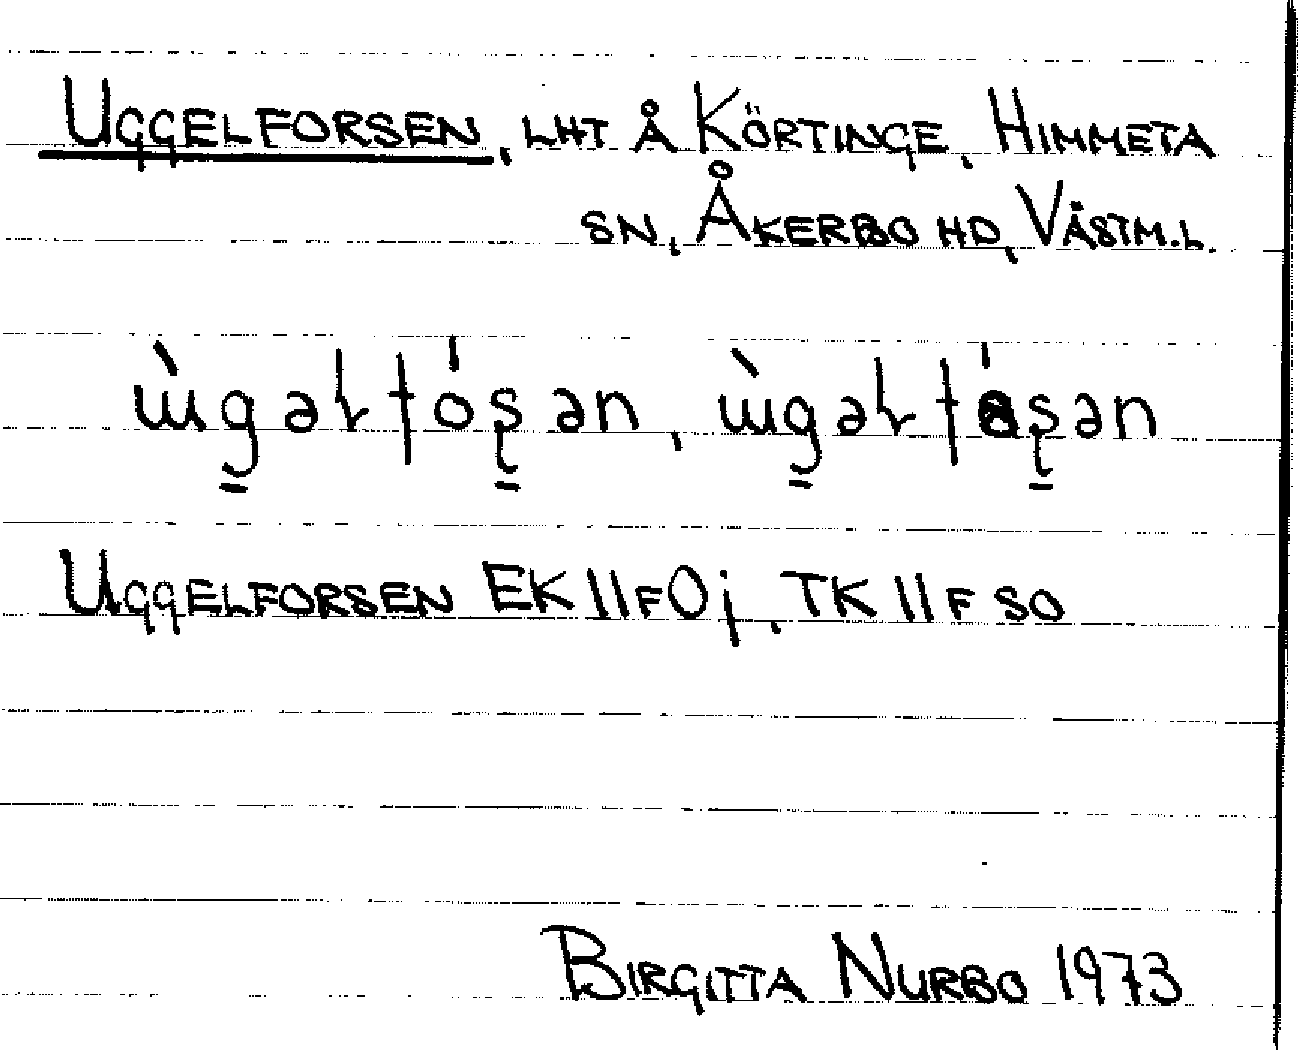 UGGELFORSEN, LHT Å KÖRTINGE, HIMMETA
SN, ÅKERBO HD, VÄSTM.L.
UGGELFORSEN EK 11f0j, TK 11F SO
BIRGITTA NURBO 1973